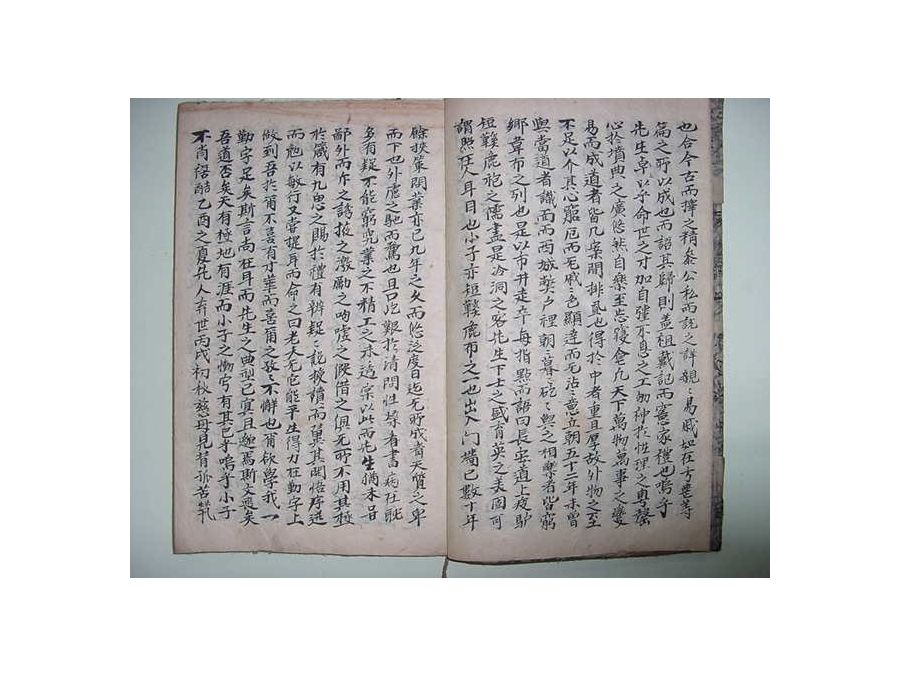 也合今古而擇之精參公私而說之詳親之易戚如在方冊等
篇之所以成也而語其歸則盖祖戴記而憲家禮也嗚乎
先生卓以予命世之才加自彊不息之工勿忡於性理之奧罄
心於墳典之廣悠然自樂至忘寢食凡天下萬物萬事之變
易而成道者皆几案間排置也得於中者重且厚故外物之至
不足以介其心窮厄而无戚色顯達而无沾意立朝五十二年未嘗
與當道者識面而西城弊戶裡朝暮矻矻與之相樂者皆窮
鄉韋布之列也是以市井走卒每指點而語曰長安道上疲馿
短鬃鹿袍之儒盡是冷洞之客先生下士之盛育英之美固可
謂照在人耳目也小子亦短鬃鹿布之一也出入门墻已數十年
餘挾策問業亦已九年之久而悠泛度日迄无所成者天質之卑
而下也外慮之馳而騖也且口訥艱於清問性辱看書病在既
多有疑不能窮究業之不精工之未造寀以此而先生猶未吕
鄙外而斥之誘掖之激勵之呴噓之假借之俱无所不用其極
於箴有九思之賜於禮有辨疑之說揆積而冀其開悟序述
而勉以敏行又嘗提耳而命之曰老夫无它能平生得力在勤字上
做到吾於爾不喜有才華而喜爾之孜孜不懈也爾欲學我一
勤字足矣斯言尚在耳而先生之典型已寘且邈焉斯文喪矣
吾道否矣天有極地有涯而小子之慟寧有其已乎嗚乎小子
不肖禍酷乙酉之夏先人弃世丙戌初秋慈母見背訴苦